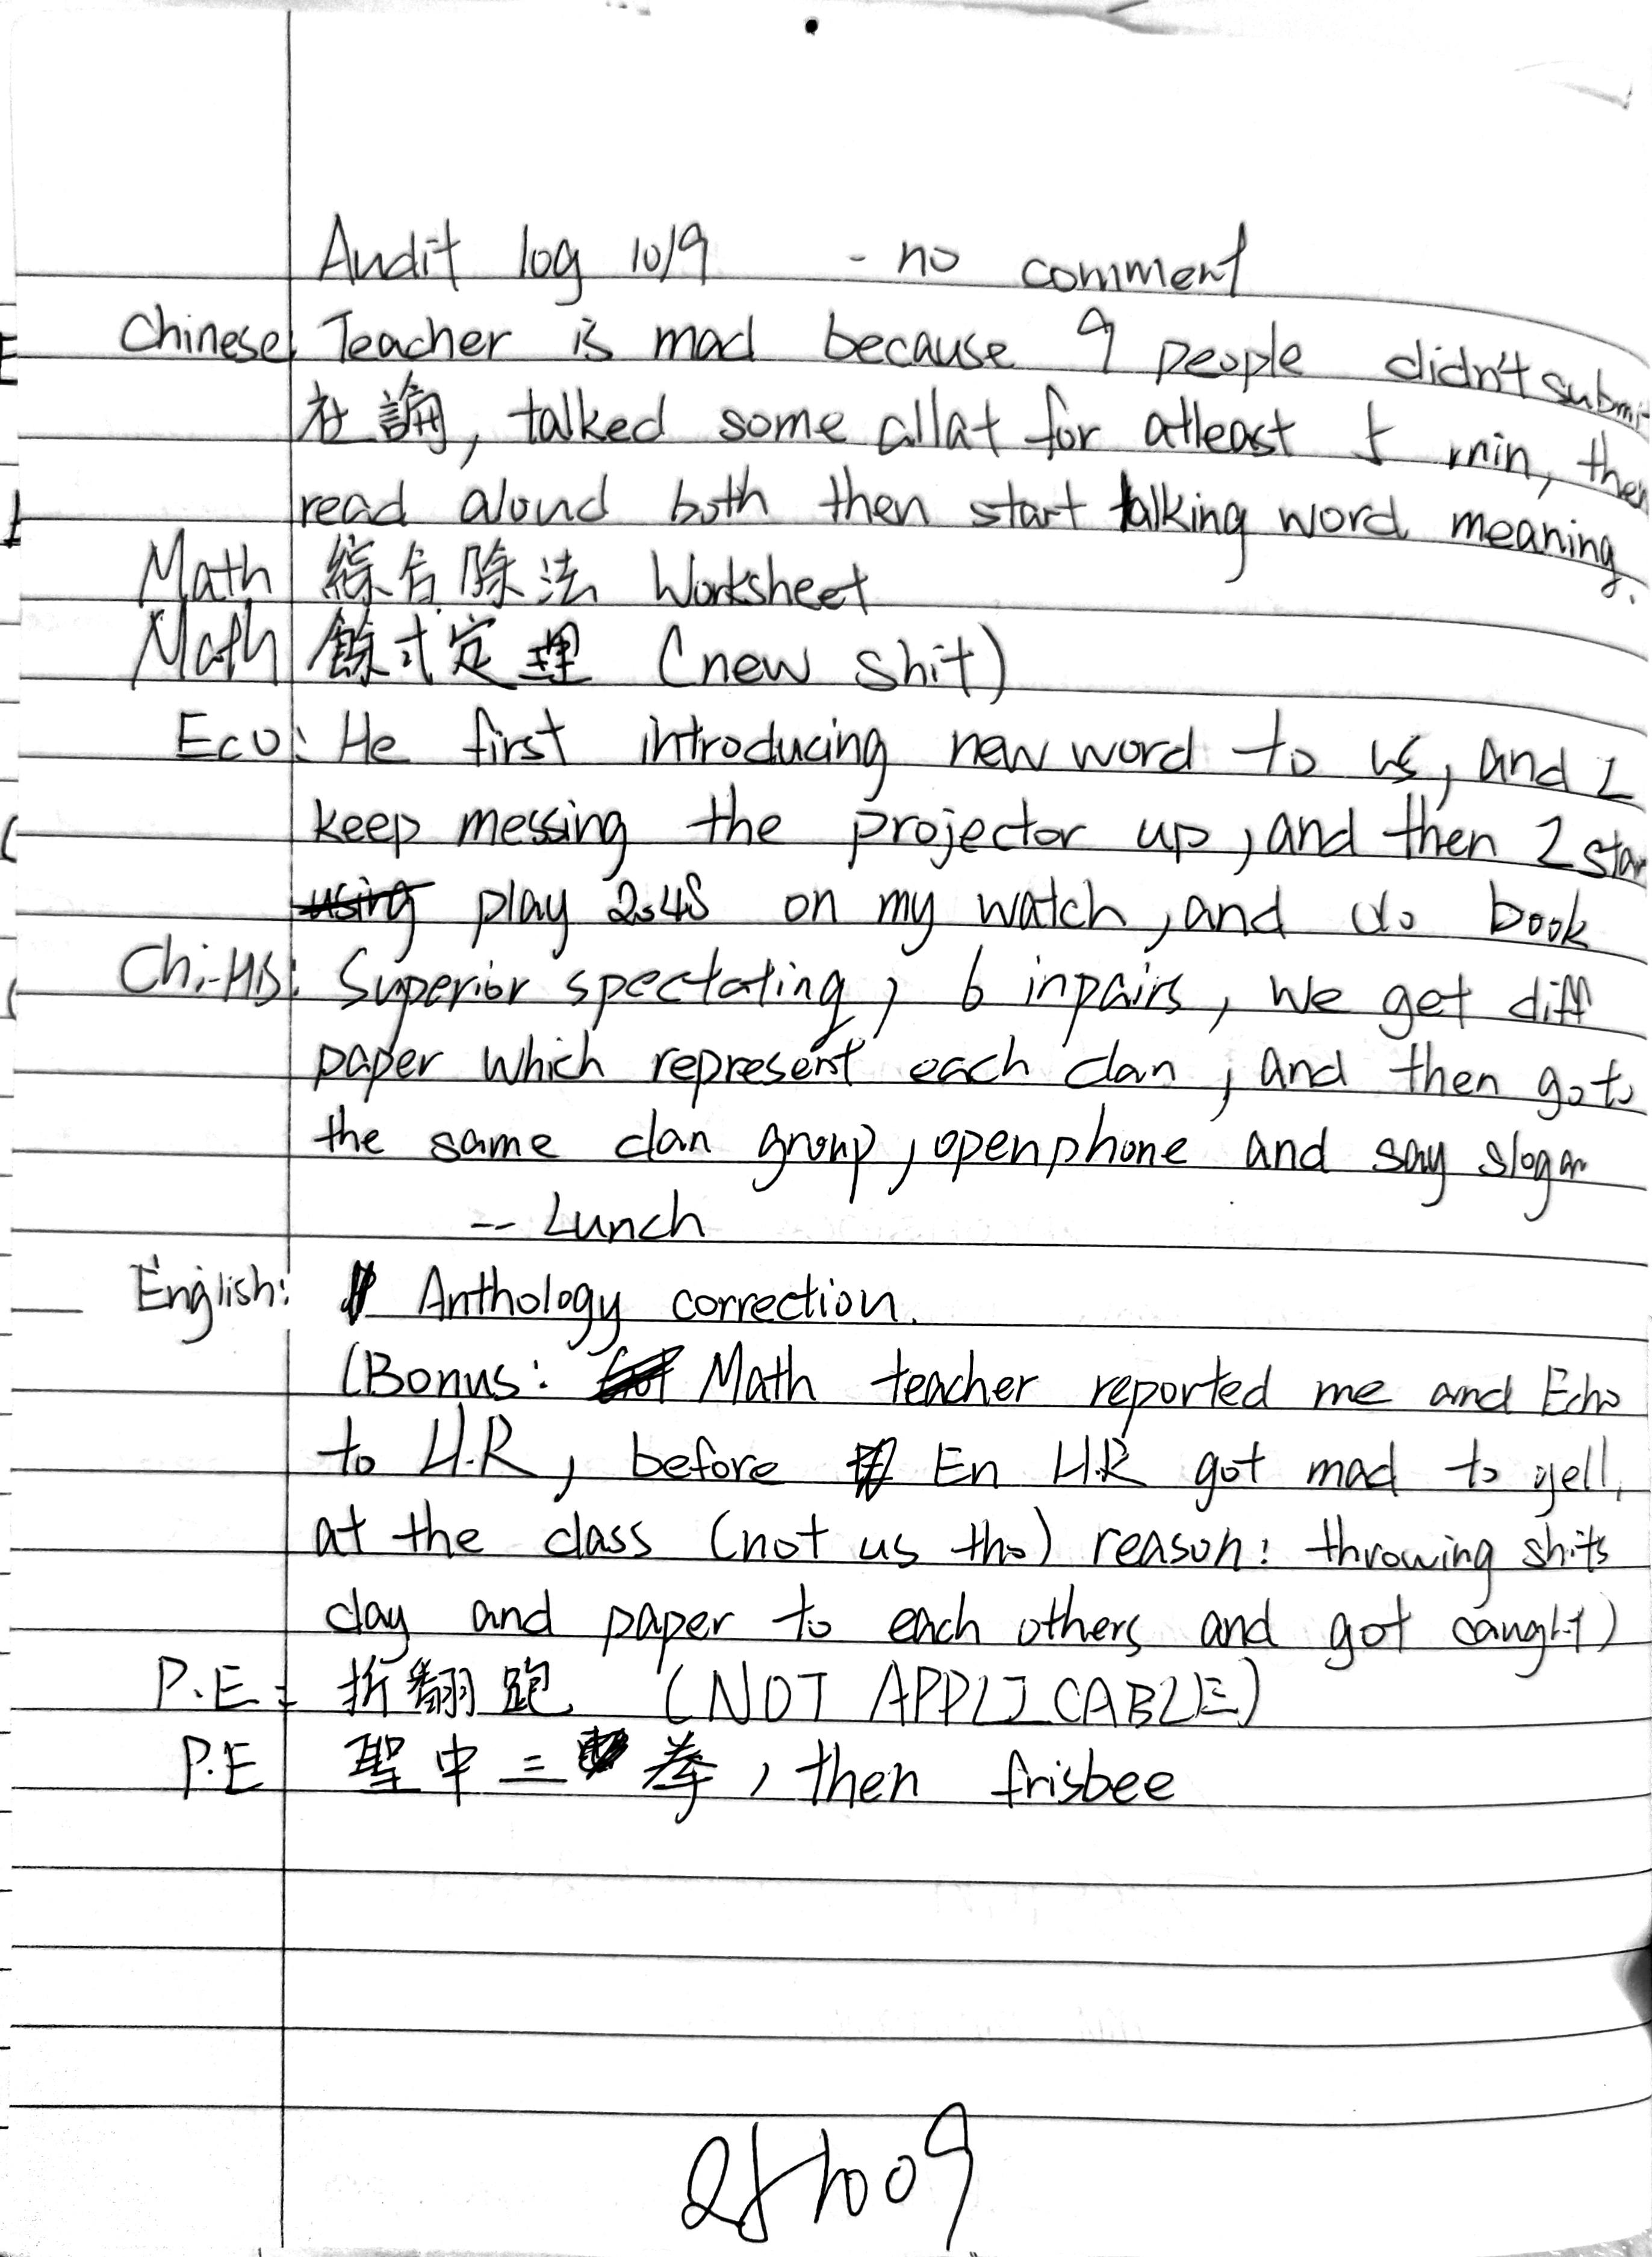 Audit log 10/9 - no comment
Chinese: Teacher is mad because 9 people didn't submi
talked some allat for atleast 5 min, then
read aloud both then start talking word meaning.
Math 綜合除法 Worksheet
Math 餘式定理 (new shit)
Eco: He first introducing new word to us, and I
keep messing the projector up, and then I star
using play 2048 on my watch, and do book
Chi-His: Superior spectating, 6 inpairs, we get diff
paper which represent each clan, and then go to
the same clan group, open phone and say slogan
-- Lunch
English: Anthology correction.
(Bonus: Math teacher reported me and Echo
to H.R, before En H.R got mad to yell,
at the class (not us tho) reason: throwing shits
clay and paper to each others and got caught)
P.E: 折翻跑 (NOT APPLICABLE)
P.E 聖中三拳, then frisbee
251009